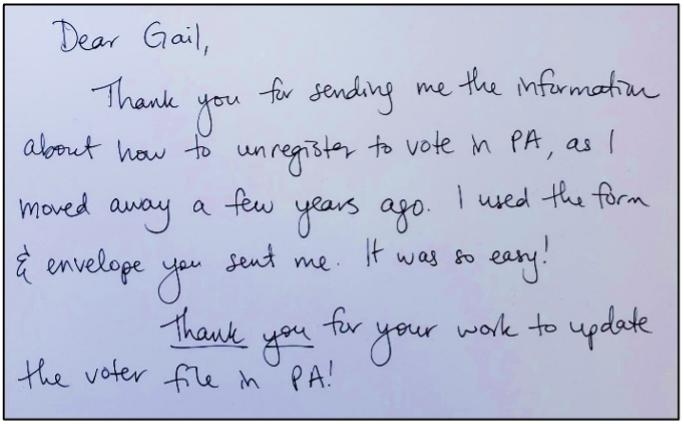 Dear Gail,
Thank you for sending me the information
about how to unregister to vote in PA, as I
moved away a few years ago. I used the form
& envelope you sent me. It was so easy!
Thank you for your work to update
the voter file in PA!